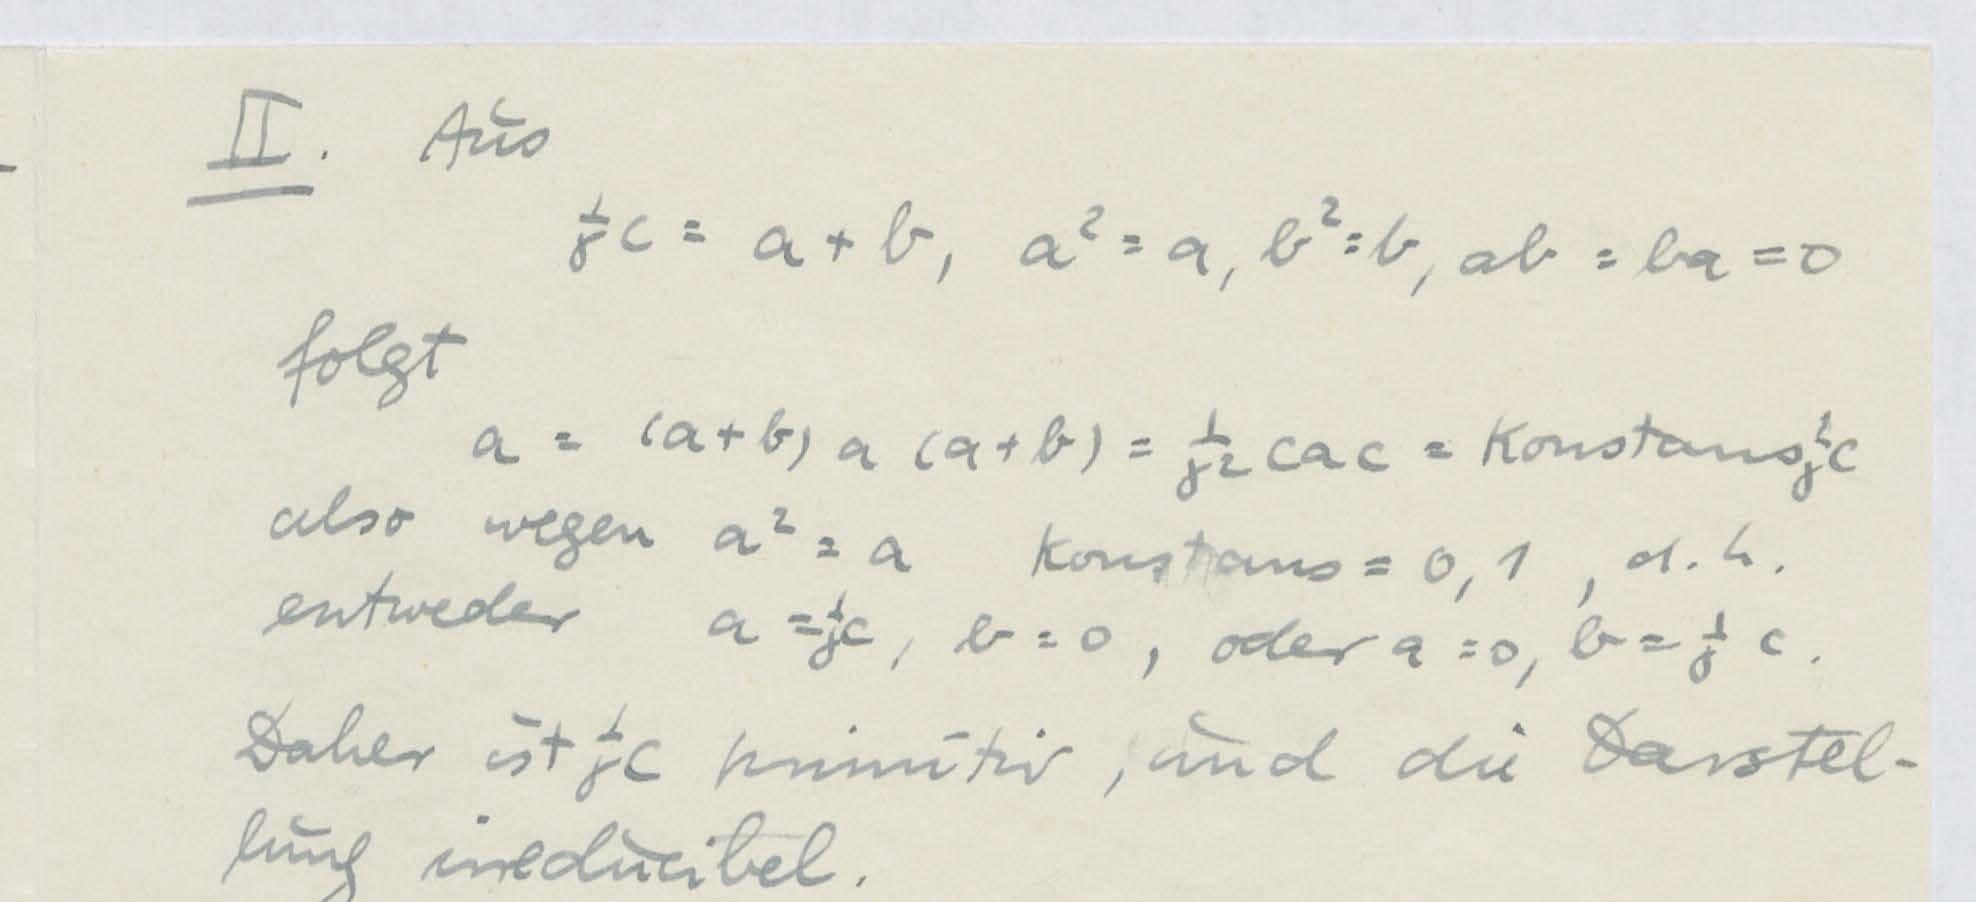 II. Aus
1/γ c = a + b, a² = a, b² = b, ab = ba = 0
folgt
a = (a+b) a (a+b) = 1/γ² cac = Konstans 1/γ c
also wegen a² = a Konstans = 0, 1, d. h.
entweder a = 1/γ c, b = 0, oder a = 0, b = 1/γ c.
Daher ist 1/γ c primitiv, und die Darstel-
lung irreducibel.